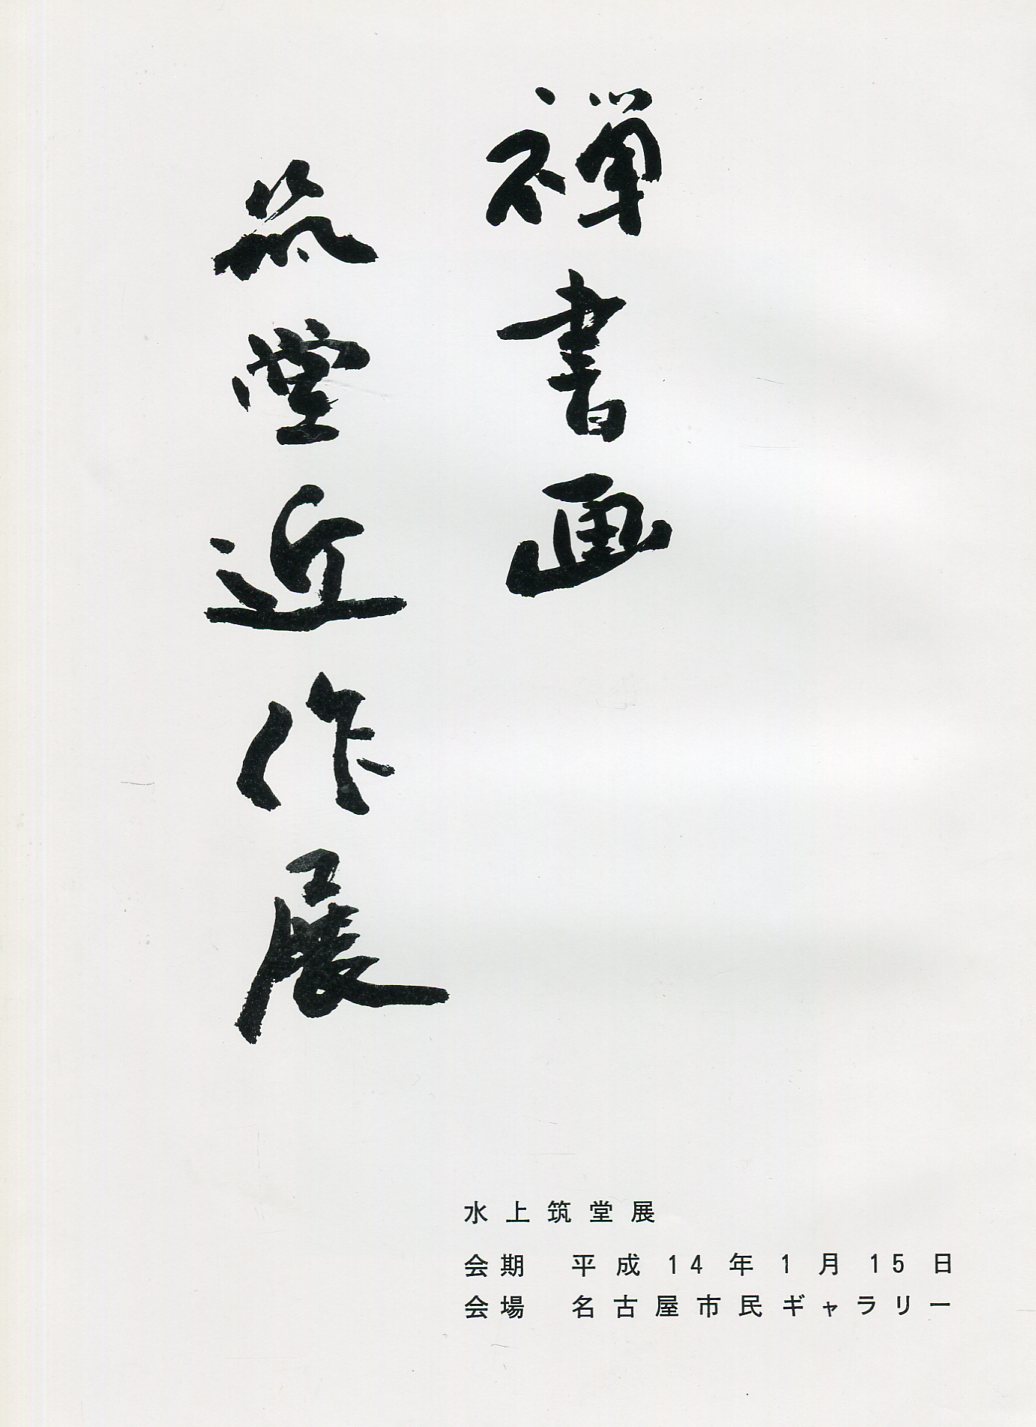 禅書画
筑堂近作展
水上筑堂展
会期 平成14年1月15日
会場 名古屋市民ギャラリー